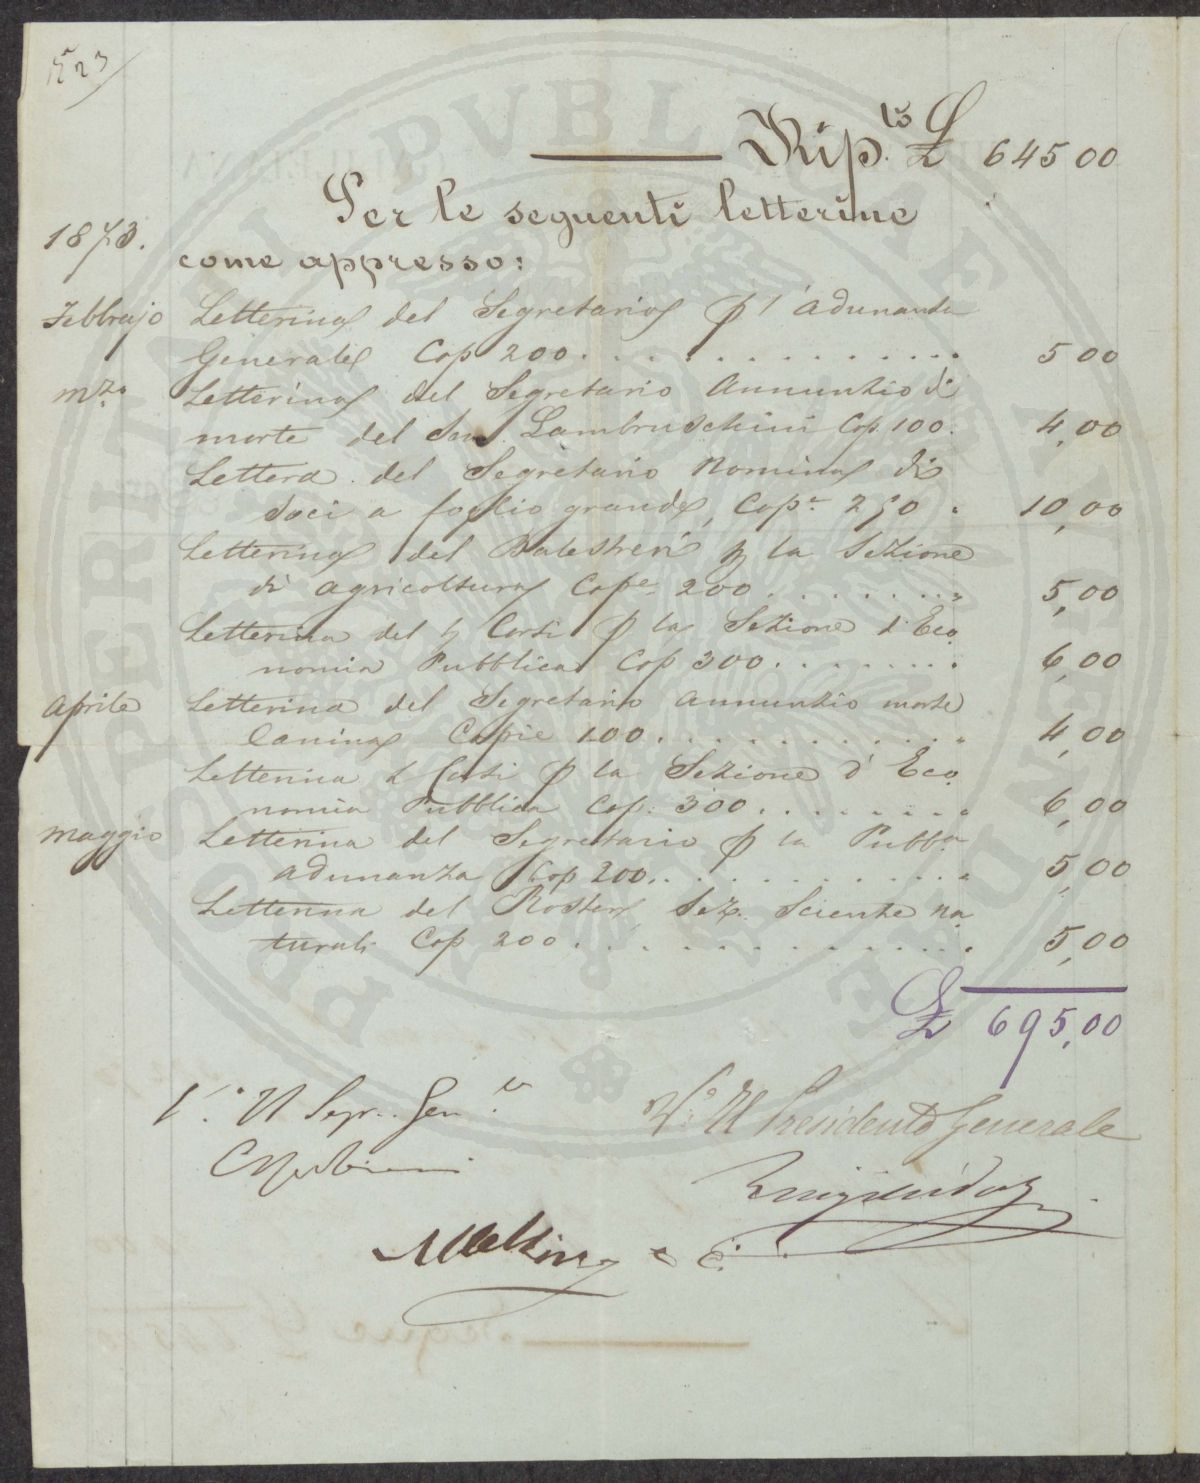 Rip.to £ 645 00
Per le seguenti letterine
1873.
come appresso:
Febbrajo Letterina del Segretario p l'adunanza
Generale Cop 200 . . . 5 00
Mzo Letterina del Segretario Annunzio di
morte del Sen. Lambruschini Cop. 100. 4,00
Lettera del Segretario Nomina di
Soci a foglio grande, Cope 250 . 10,00
Letterina del Balestreri p la Sezione
di agricoltura Cope 200 . . . 5,00
Letterina del Corsi p la Sezione d'Eco
nomia Pubblica Cop 300 . . . 6,00
Aprile Letterina del Segretario annunzio morte
Canina Copie 100 . . . 4,00
Letterina Corsi p la Sezione d'Eco
nomia Pubblica Cop. 300 . . . 6,00
Maggio Letterina del Segretario p la Pubbca
adunanza Cop 200 . . . 5,00
Letterina del Roster Sez. Scienze na
turali Cop 200 . . . 5,00
£ 695,00
V.o Il Segr. Gen.le
V.o Il Presidente Generale
PROSPERITATI PVBLICAE AVGENDAE